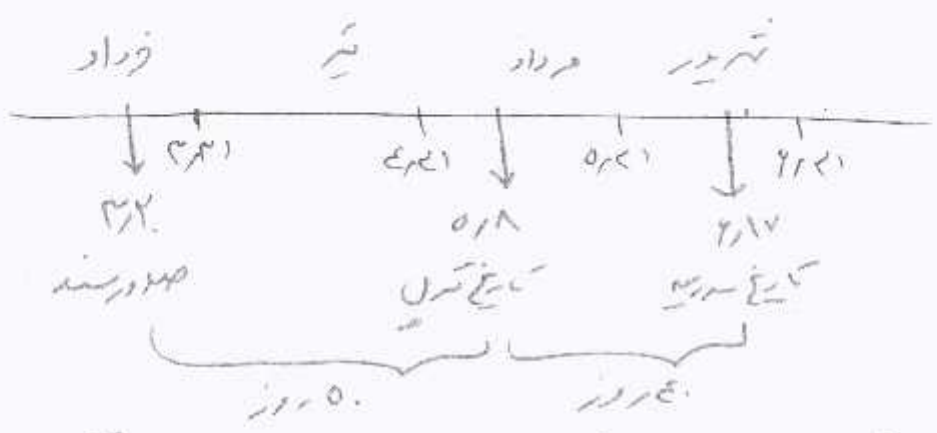 خرداد تیر مرداد شهریور
۳٫۳۱ ۴٫۳۱ ۵٫۳۱ ۶٫۳۱
۳٫۲۰ ۵٫۸ ۶٫۱۷
صدور سند تاریخ تنزیل تاریخ سررسید
۵۰ روز ۴۰ روز